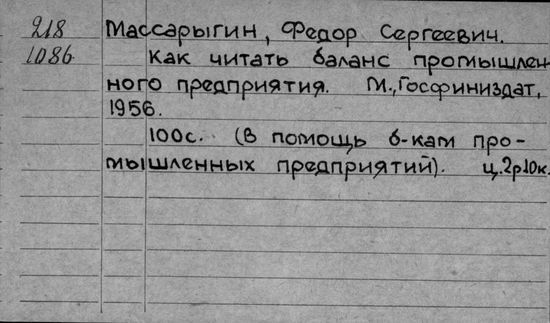 218 Массарыгин, Федор Сергеевич.
1086 Как читать баланс промышлен-
ного предприятия. М., Госфиниздат,
1956.
100с. (В помощь б-кам про-
мышленных предприятий). ц.2р10к.